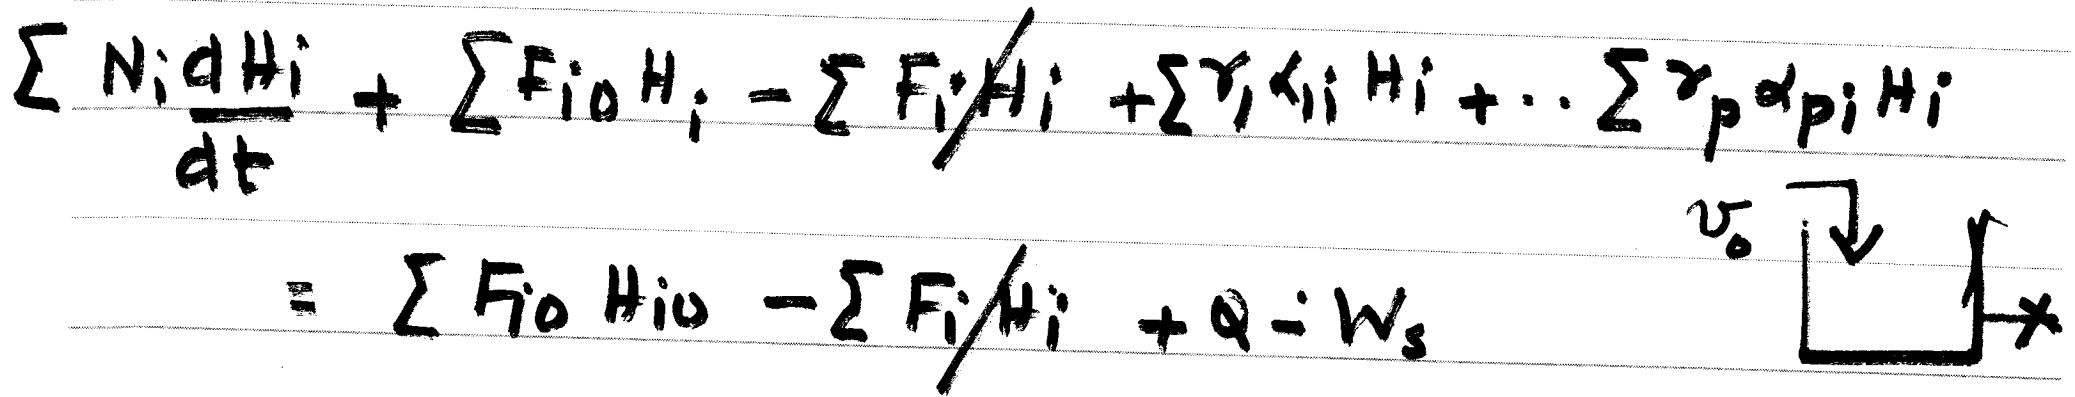 Σ Ni dHi/dt + Σ Fi0 Hi - Σ Fi Hi + Σ r1 α1i Hi + ... Σ rp αpi Hi
v0
= Σ Fi0 Hi0 - Σ Fi Hi + Q - Ws